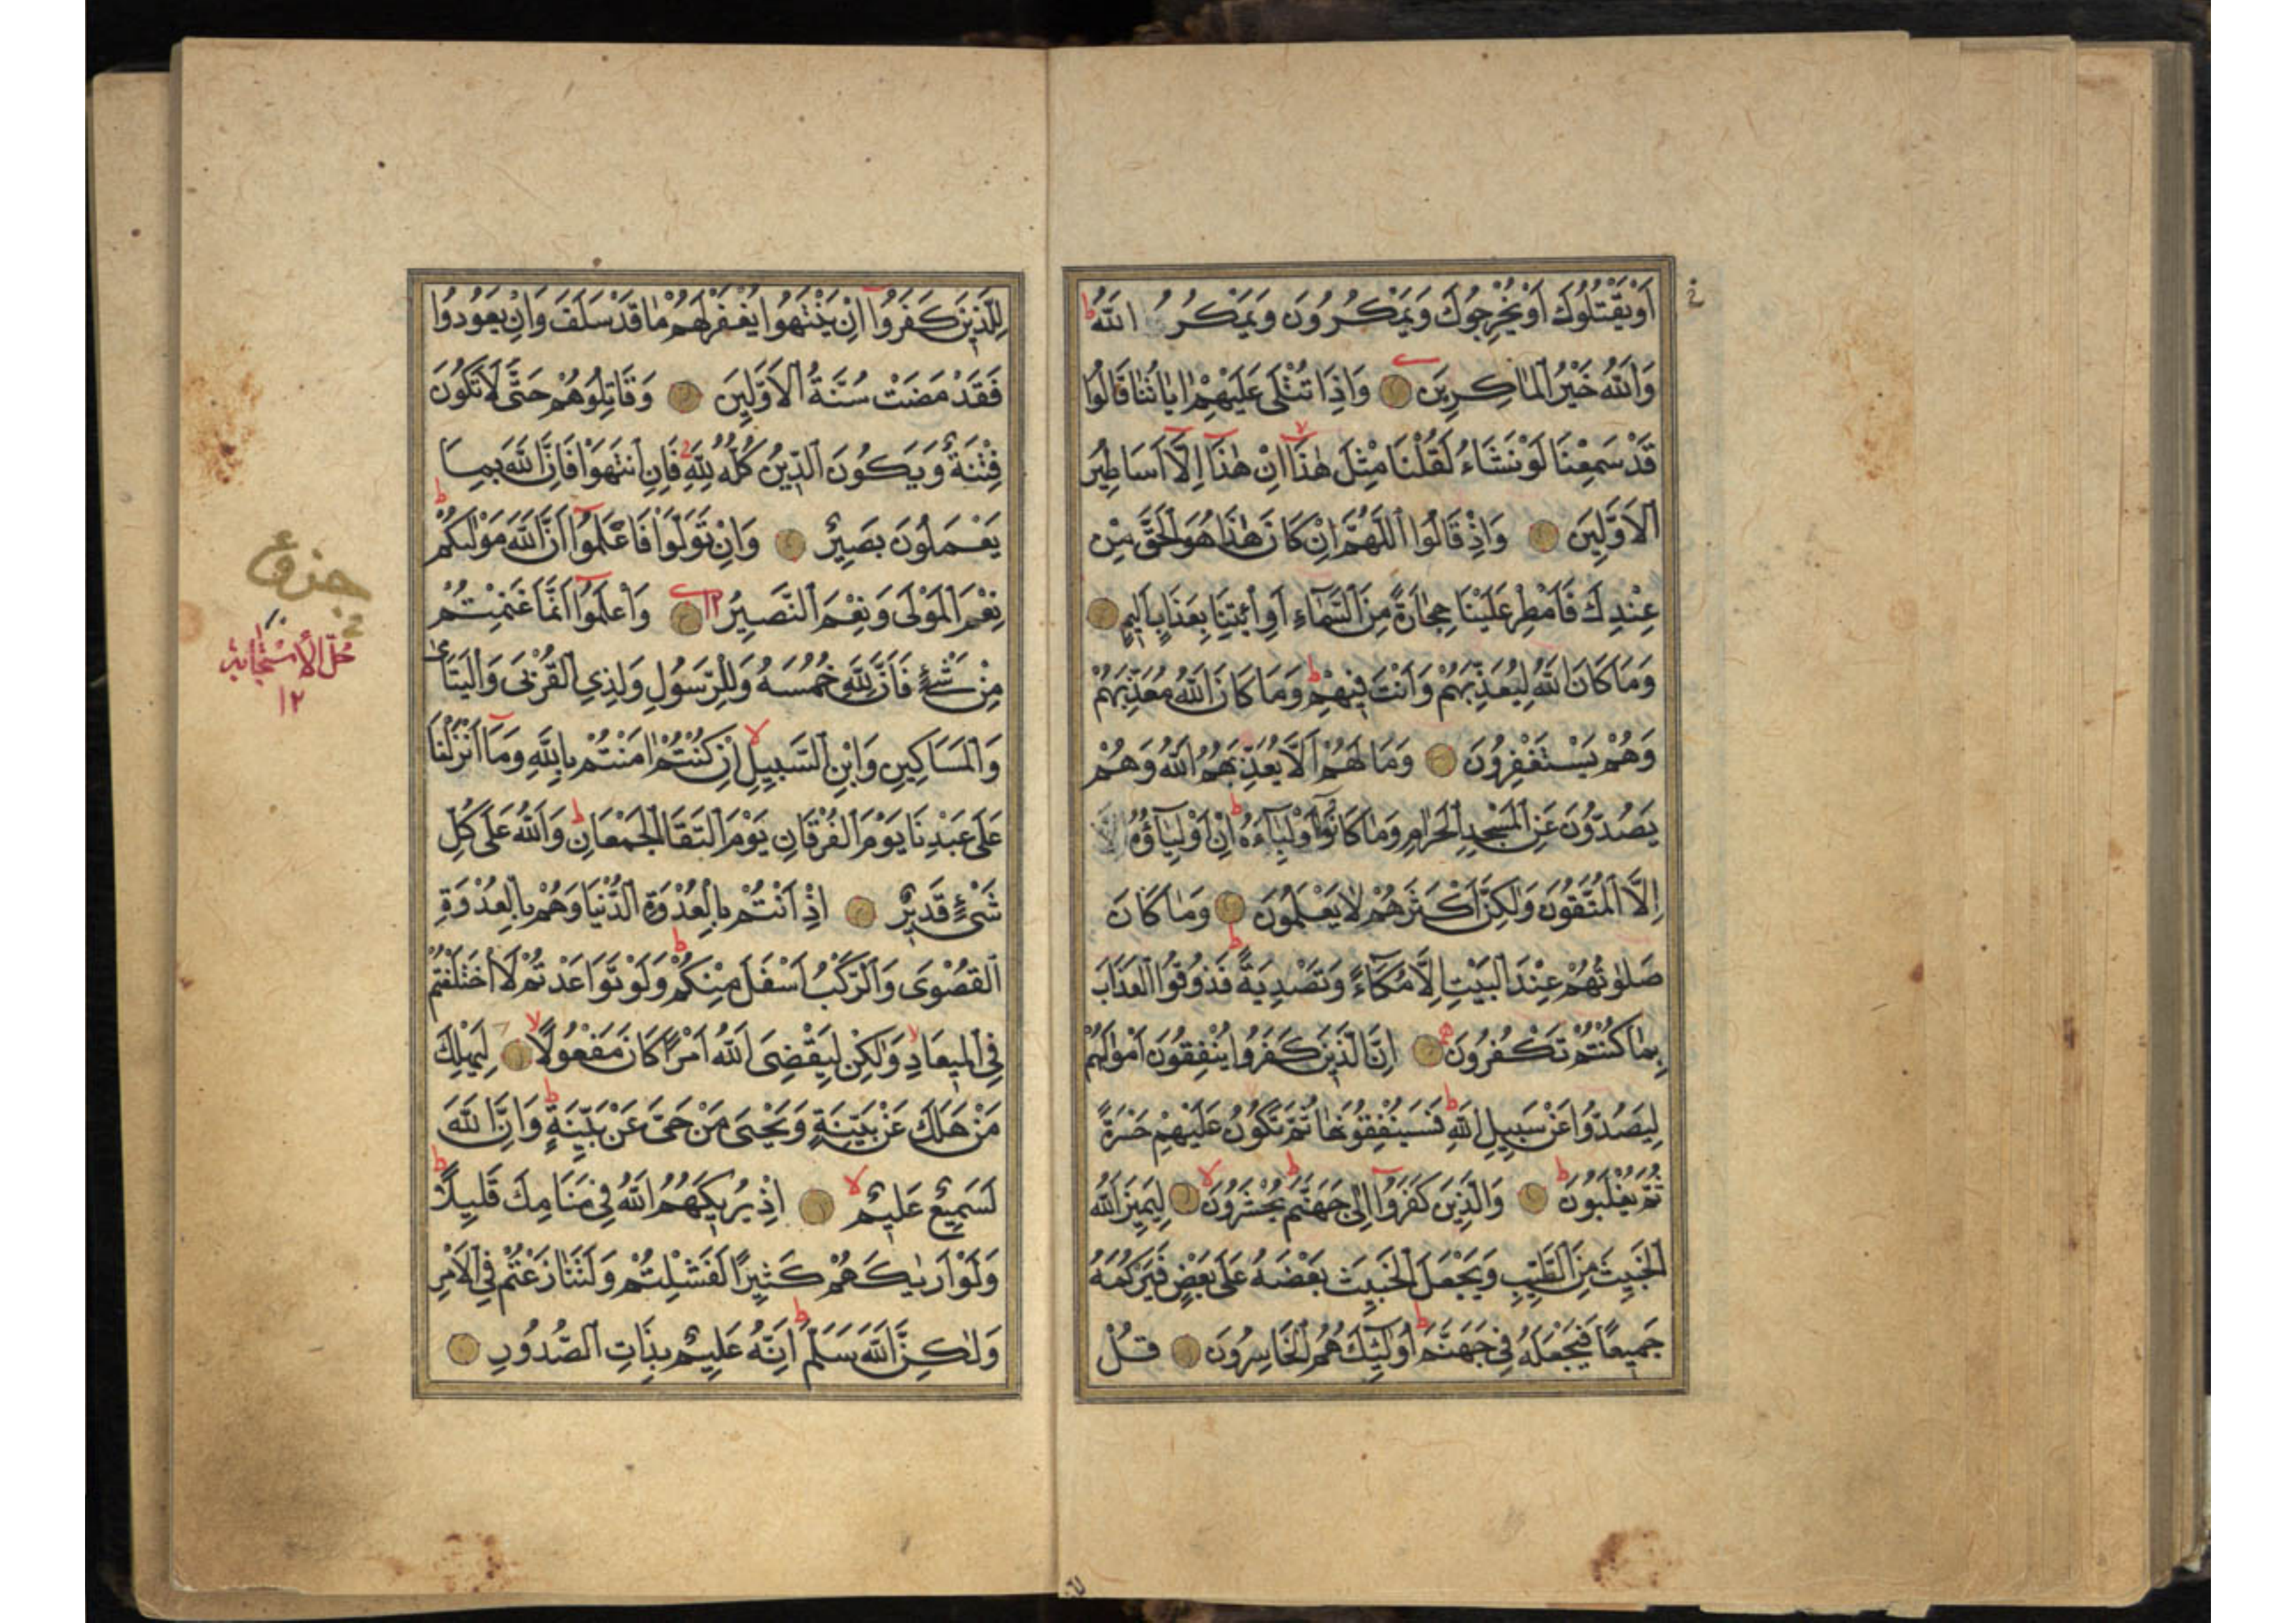 اَوْ يَقْتُلُوكَ اَوْ يُخْرِجُوكَ وَيَمْكُرُونَ وَيَمْكُرُ اللّٰهُ ط
وَاللّٰهُ خَيْرُ الْمَاكِرِينَ وَاِذَا تُتْلٰى عَلَيْهِمْ اٰيَاتُنَا قَالُوا
قَدْ سَمِعْنَا لَوْ نَشَاءُ لَقُلْنَا مِثْلَ هٰذَا لا اِنْ هٰذَا اِلَّا اَسَاطِيرُ
الْاَوَّلِينَ وَاِذْ قَالُوا اللّٰهُمَّ اِنْ كَانَ هٰذَا هُوَ الْحَقَّ مِنْ
عِنْدِكَ فَاَمْطِرْ عَلَيْنَا حِجَارَةً مِنَ السَّمَاءِ اَوِ ائْتِنَا بِعَذَابٍ اَلِيمٍ
وَمَا كَانَ اللّٰهُ لِيُعَذِّبَهُمْ وَاَنْتَ فِيهِمْ ط وَمَا كَانَ اللّٰهُ مُعَذِّبَهُمْ
وَهُمْ يَسْتَغْفِرُونَ وَمَا لَهُمْ اَلَّا يُعَذِّبَهُمُ اللّٰهُ وَهُمْ
يَصُدُّونَ عَنِ الْمَسْجِدِ الْحَرَامِ وَمَا كَانُوا اَوْلِيَاءَهُ ط اِنْ اَوْلِيَاؤُهُ
اِلَّا الْمُتَّقُونَ وَلٰكِنَّ اَكْثَرَهُمْ لَا يَعْلَمُونَ وَمَا كَانَ
صَلٰوتُهُمْ عِنْدَ الْبَيْتِ اِلَّا مُكَاءً وَتَصْدِيَةً ط فَذُوقُوا الْعَذَابَ
بِمَا كُنْتُمْ تَكْفُرُونَ اِنَّ الَّذِينَ كَفَرُوا يُنْفِقُونَ اَمْوَالَهُمْ
لِيَصُدُّوا عَنْ سَبِيلِ اللّٰهِ ط فَسَيُنْفِقُونَهَا ثُمَّ تَكُونُ عَلَيْهِمْ حَسْرَةً
ثُمَّ يُغْلَبُونَ ط وَالَّذِينَ كَفَرُوا اِلٰى جَهَنَّمَ ط يُحْشَرُونَ لا لِيَمِيزَ اللّٰهُ
الْخَبِيثَ مِنَ الطَّيِّبِ وَيَجْعَلَ الْخَبِيثَ بَعْضَهُ عَلٰى بَعْضٍ فَيَرْكُمَهُ
جَمِيعًا فَيَجْعَلَهُ فِي جَهَنَّمَ ط اُولٰئِكَ هُمُ الْخَاسِرُونَ قُلْ
لِلَّذِينَ كَفَرُوا اِنْ يَنْتَهُوا يُغْفَرْ لَهُمْ مَا قَدْ سَلَفَ وَاِنْ يَعُودُوا
فَقَدْ مَضَتْ سُنَّةُ الْاَوَّلِينَ وَقَاتِلُوهُمْ حَتّٰى لَا تَكُونَ
فِتْنَةٌ وَيَكُونَ الدِّينُ كُلُّهُ لِلّٰهِ فَاِنِ انْتَهَوْا فَاِنَّ اللّٰهَ بِمَا
يَعْمَلُونَ بَصِيرٌ وَاِنْ تَوَلَّوْا فَاعْلَمُوا اَنَّ اللّٰهَ مَوْلٰيكُمْ ط
نِعْمَ الْمَوْلٰى وَنِعْمَ النَّصِيرُ وَاعْلَمُوا اَنَّمَا غَنِمْتُمْ
مِنْ شَيْءٍ فَاَنَّ لِلّٰهِ خُمُسَهُ وَلِلرَّسُولِ وَلِذِي الْقُرْبٰى وَالْيَتَامٰى
وَالْمَسَاكِينِ وَابْنِ السَّبِيلِ لا اِنْ كُنْتُمْ اٰمَنْتُمْ بِاللّٰهِ وَمَا اَنْزَلْنَا
عَلٰى عَبْدِنَا يَوْمَ الْفُرْقَانِ يَوْمَ الْتَقَى الْجَمْعَانِ ط وَاللّٰهُ عَلٰى كُلِّ
شَيْءٍ قَدِيرٌ اِذْ اَنْتُمْ بِالْعُدْوَةِ الدُّنْيَا وَهُمْ بِالْعُدْوَةِ
الْقُصْوٰى وَالرَّكْبُ اَسْفَلَ مِنْكُمْ ط وَلَوْ تَوَاعَدْتُمْ لَاخْتَلَفْتُمْ
فِي الْمِيعَادِ لا وَلٰكِنْ لِيَقْضِيَ اللّٰهُ اَمْرًا كَانَ مَفْعُولًا لا لِيَهْلِكَ
مَنْ هَلَكَ عَنْ بَيِّنَةٍ وَيَحْيٰى مَنْ حَيَّ عَنْ بَيِّنَةٍ ط وَاِنَّ اللّٰهَ
لَسَمِيعٌ عَلِيمٌ لا اِذْ يُرِيكَهُمُ اللّٰهُ فِي مَنَامِكَ قَلِيلًا ط
وَلَوْ اَرٰيكَهُمْ كَثِيرًا لَفَشِلْتُمْ وَلَتَنَازَعْتُمْ فِي الْاَمْرِ
وَلٰكِنَّ اللّٰهَ سَلَّمَ ط اِنَّهُ عَلِيمٌ بِذَاتِ الصُّدُورِ